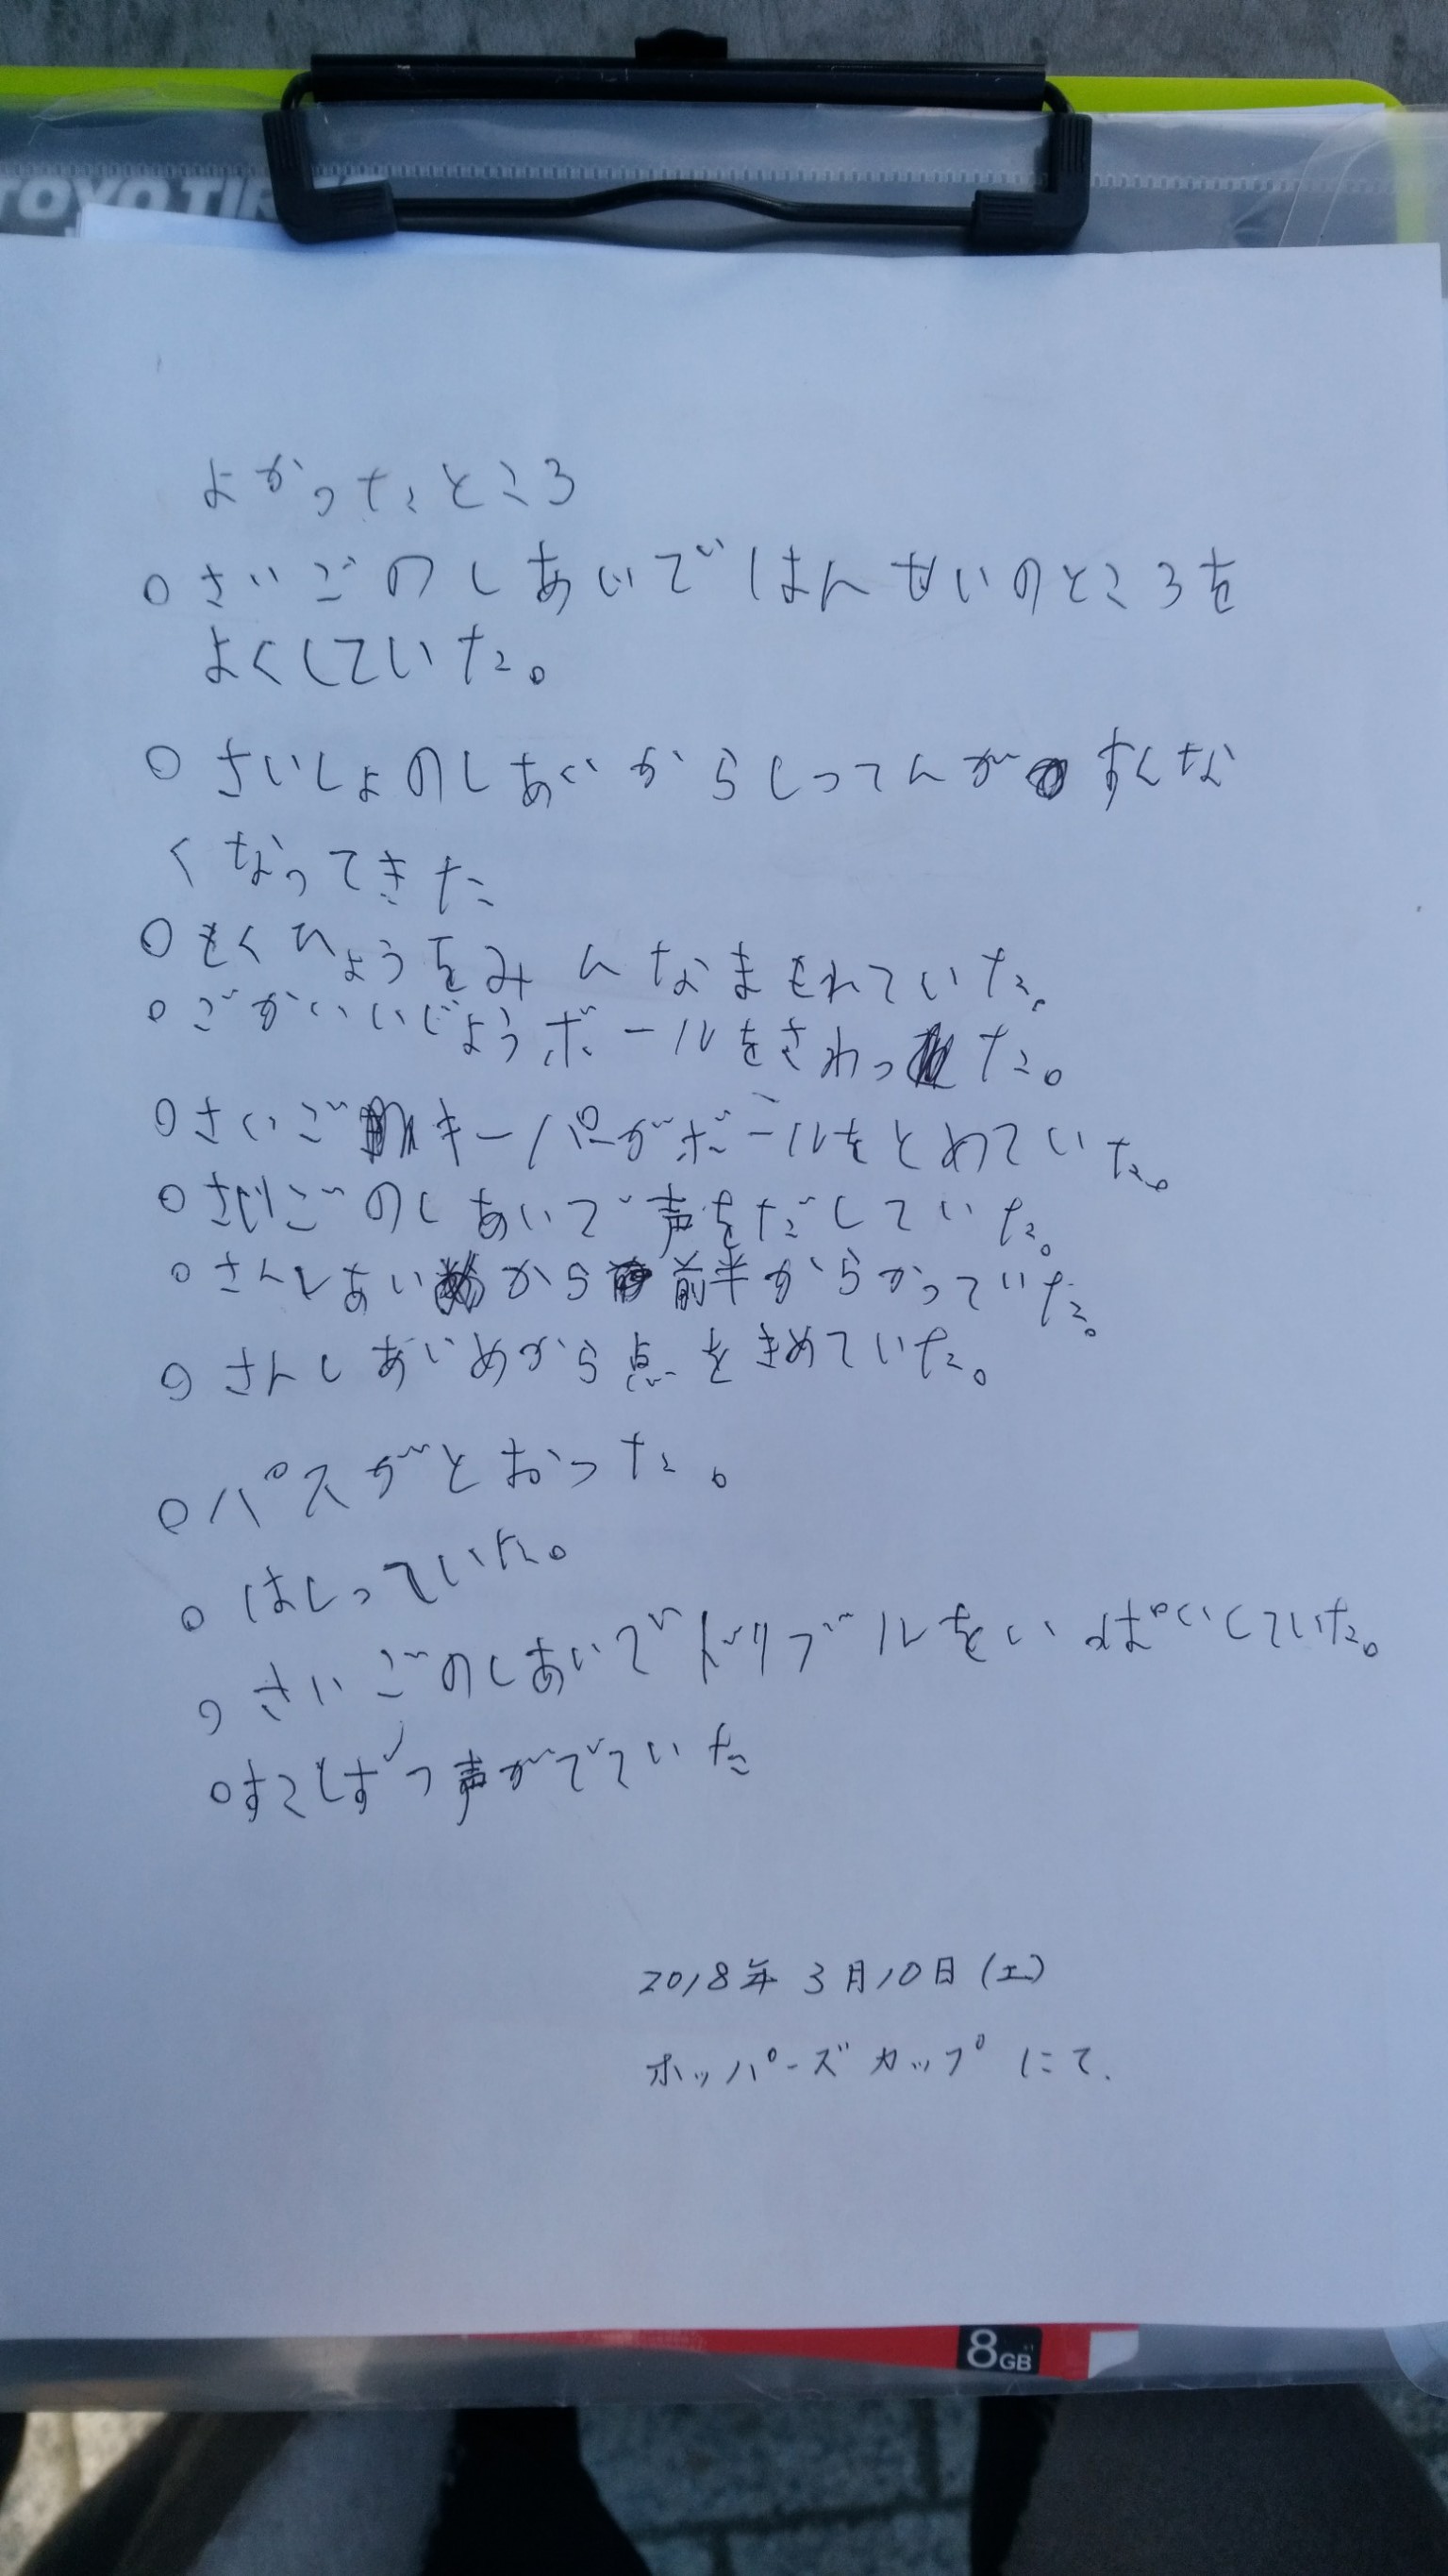 TOYO TIR
よかったところ
○さいごのしあいではんせいのところを
よくしていた。
○さいしょのしあいからしってんがすくな
くなってきた
○もくひょうをみんなまもれていた。
○ごかいいじょうボールをさわった。
○さいごキーパーがボールをとめていた。
○さいごのしあいで声をだしていた。
○さんしあいから前半からかっていた。
○さんしあいめから点をきめていた。
○パスがとおった。
○はしっていた。
○さいごのしあいでドリブルをいっぱいしていた。
○すこしずつ声がでていた
2018年3月10日(土)
ホッパーズカップにて.
8GB